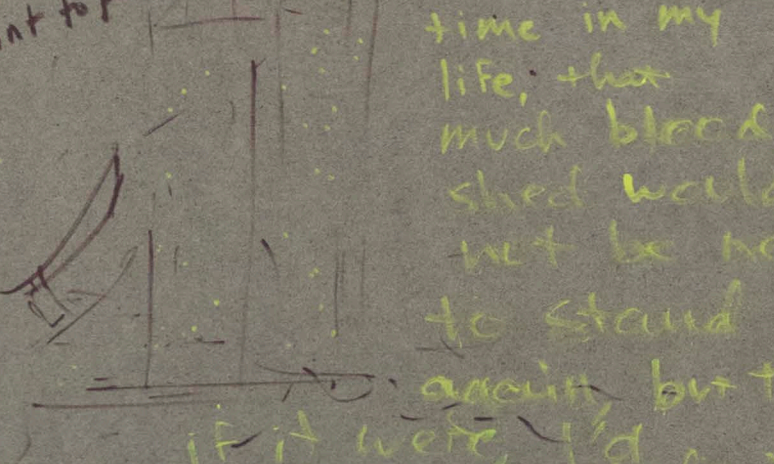 time in my
life, that
much blood
shed would
not be
to stand
again, but
if it were, I'd